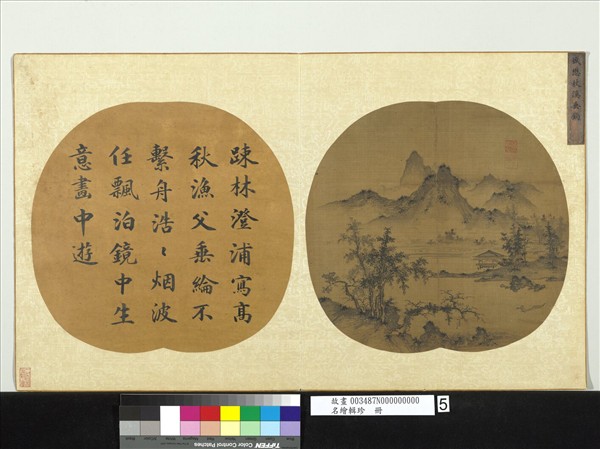 踈林澄浦寫髙
秋漁父垂綸不
繫舟浩〻烟波
任飄泊鏡中生
意畫中遊
盛懋秋
故畫 003487N000000000
名繪輯珍 冊
5
TIFFEN Color Control Patches